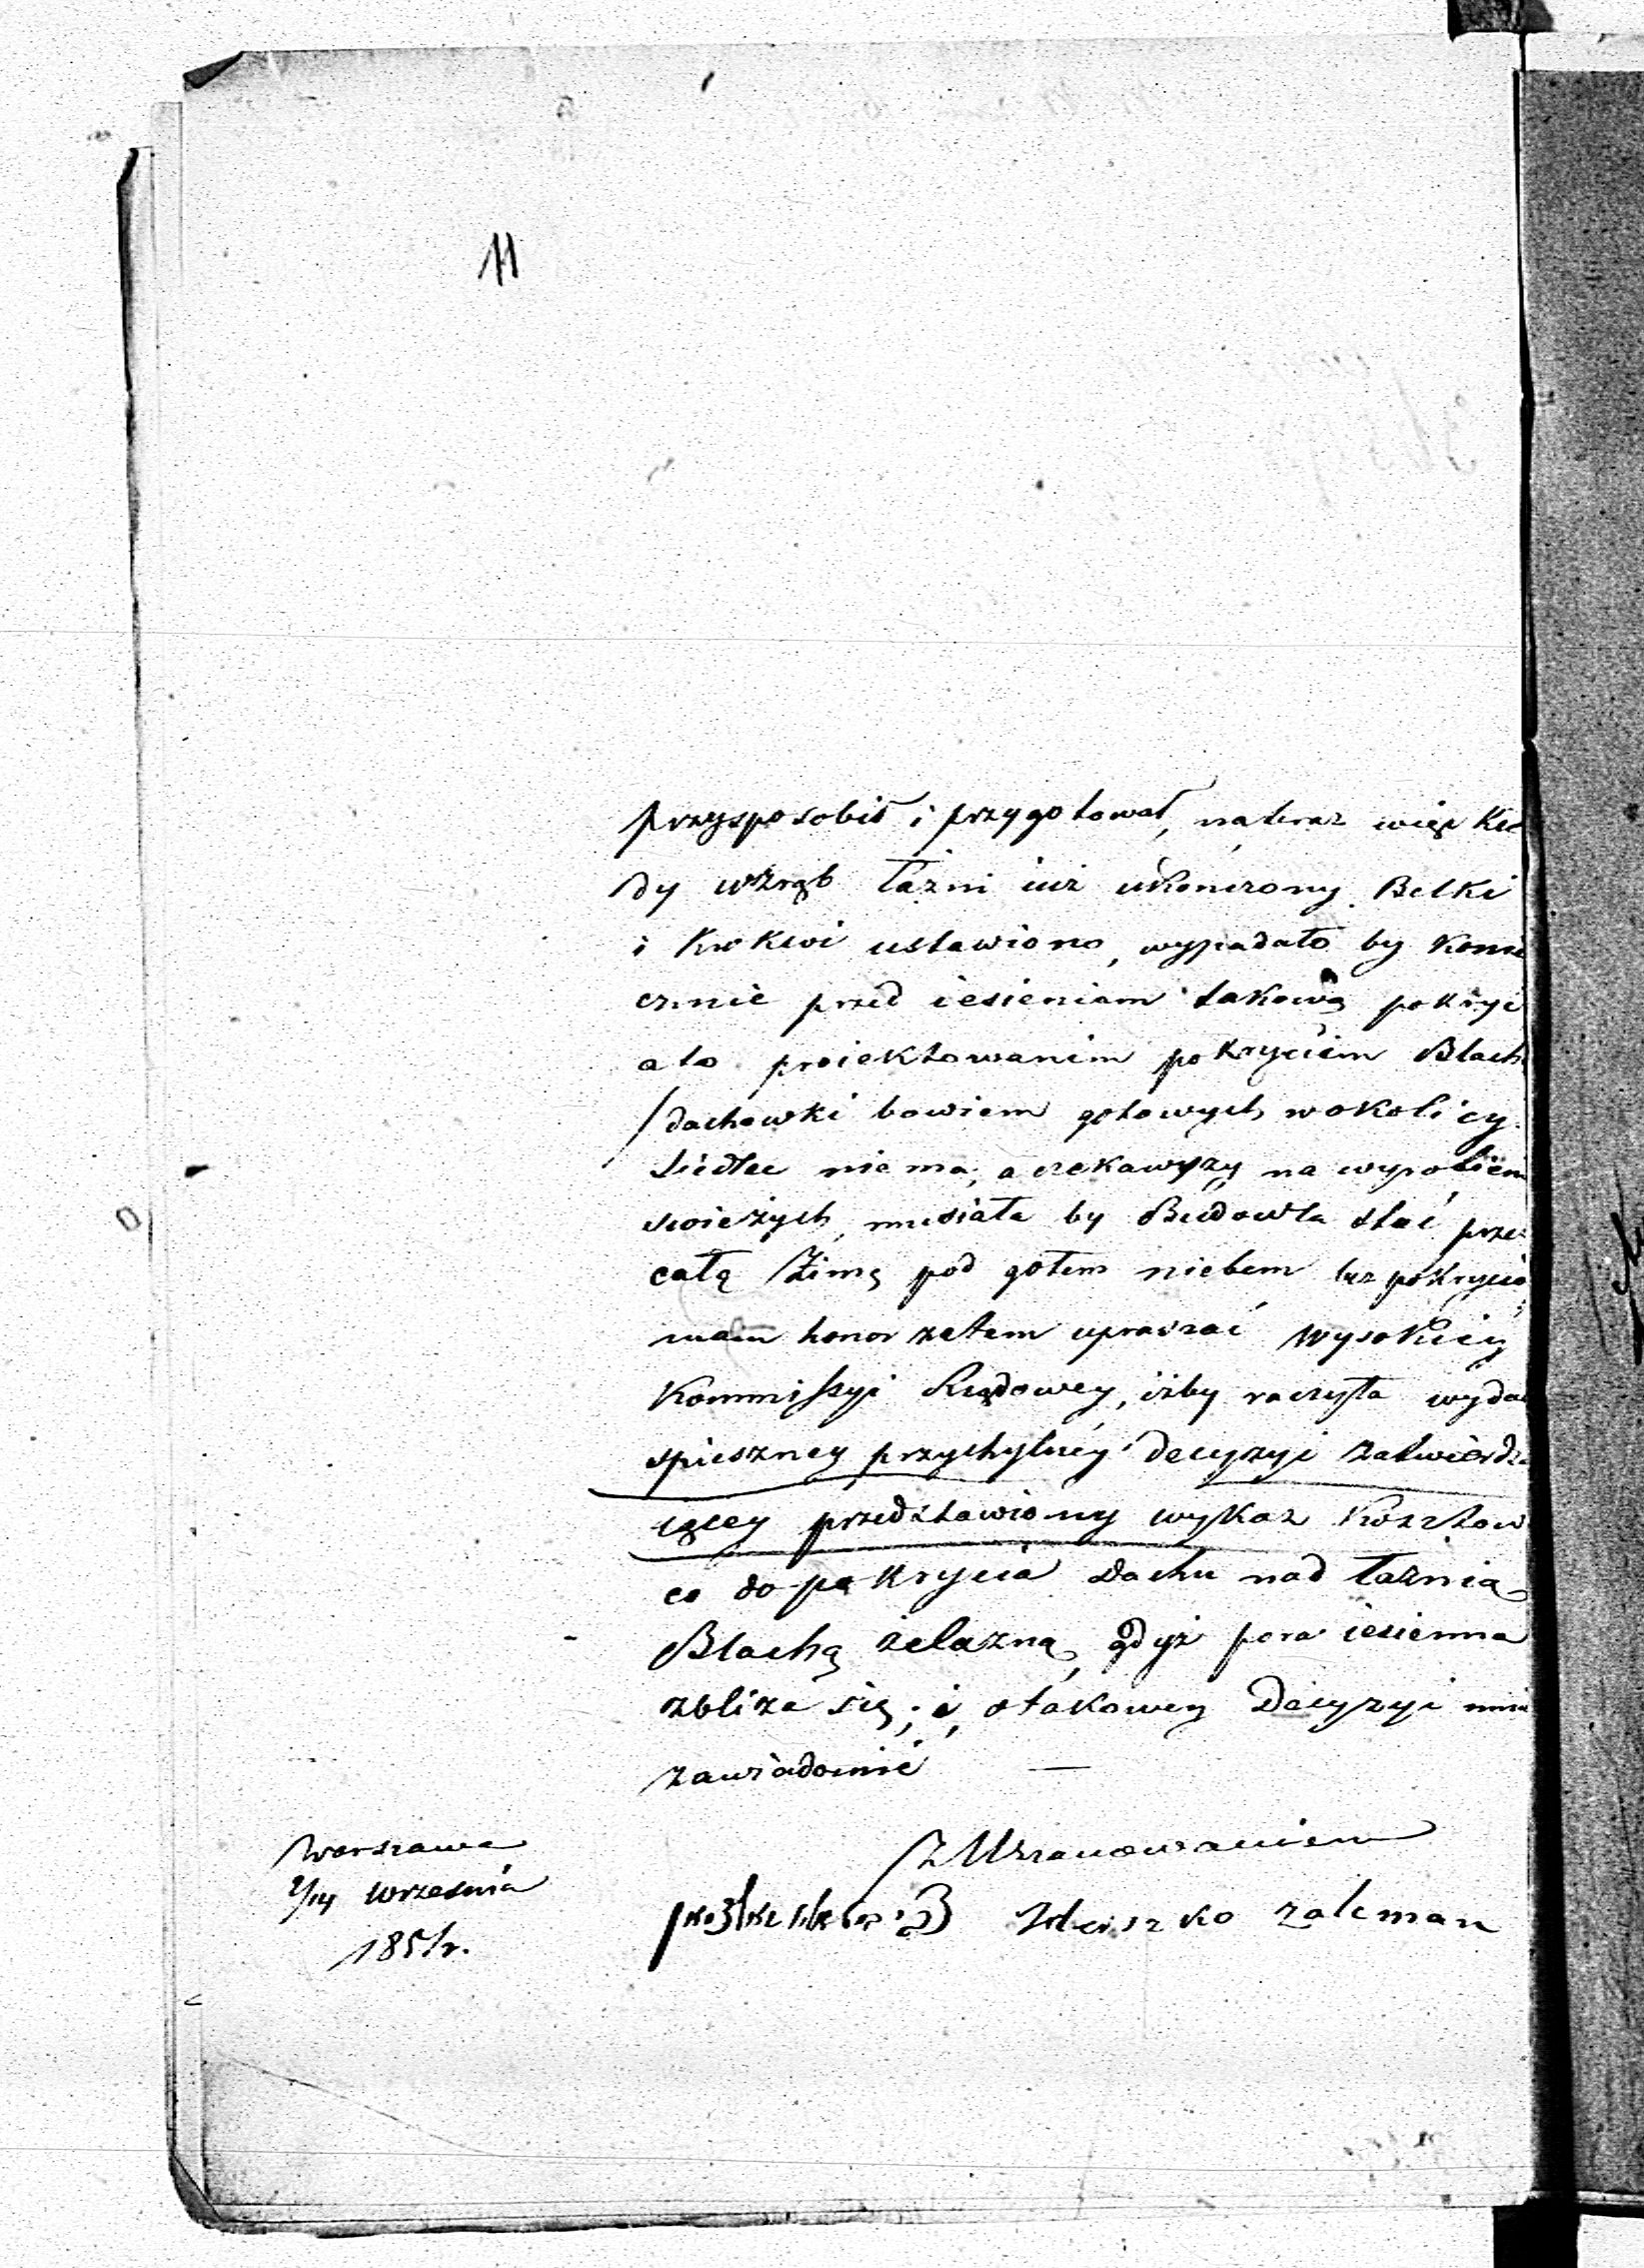 11
przysposobił i przygotował, nateraz więc Kie
dy wZrąb łazni iuż ukonczony Belki
i Krokwi ustawiono, wypadało by Konie
cznie przed iesieniam takową pokryć
a to proiektowanim pokryciem Blach
dachowki bowiem gotowych w okolicy
Siedlec nie ma, a czekawszy na wyrobieni
swieżych, musiała by Budowla stać prze
całą Zimę pod gołem niebem bez pokrycia
mam honor zatem upraszać Wysokiey
Kommissyi Rządowey, iżby raczyła wydać
spieszney przychylney decyzyi zatwierdza
iącey przedstawiony wykaz Kosztow
co do pokrycia Dachu nad łaznią
Blachą żelazną, gdyż pora iesienna
zbliża się; i otakowey Decyzyi mnie
zawiadomić —
Z Uszanowaniem
Warszawa
2/14 Września
1851 r.
zaleman